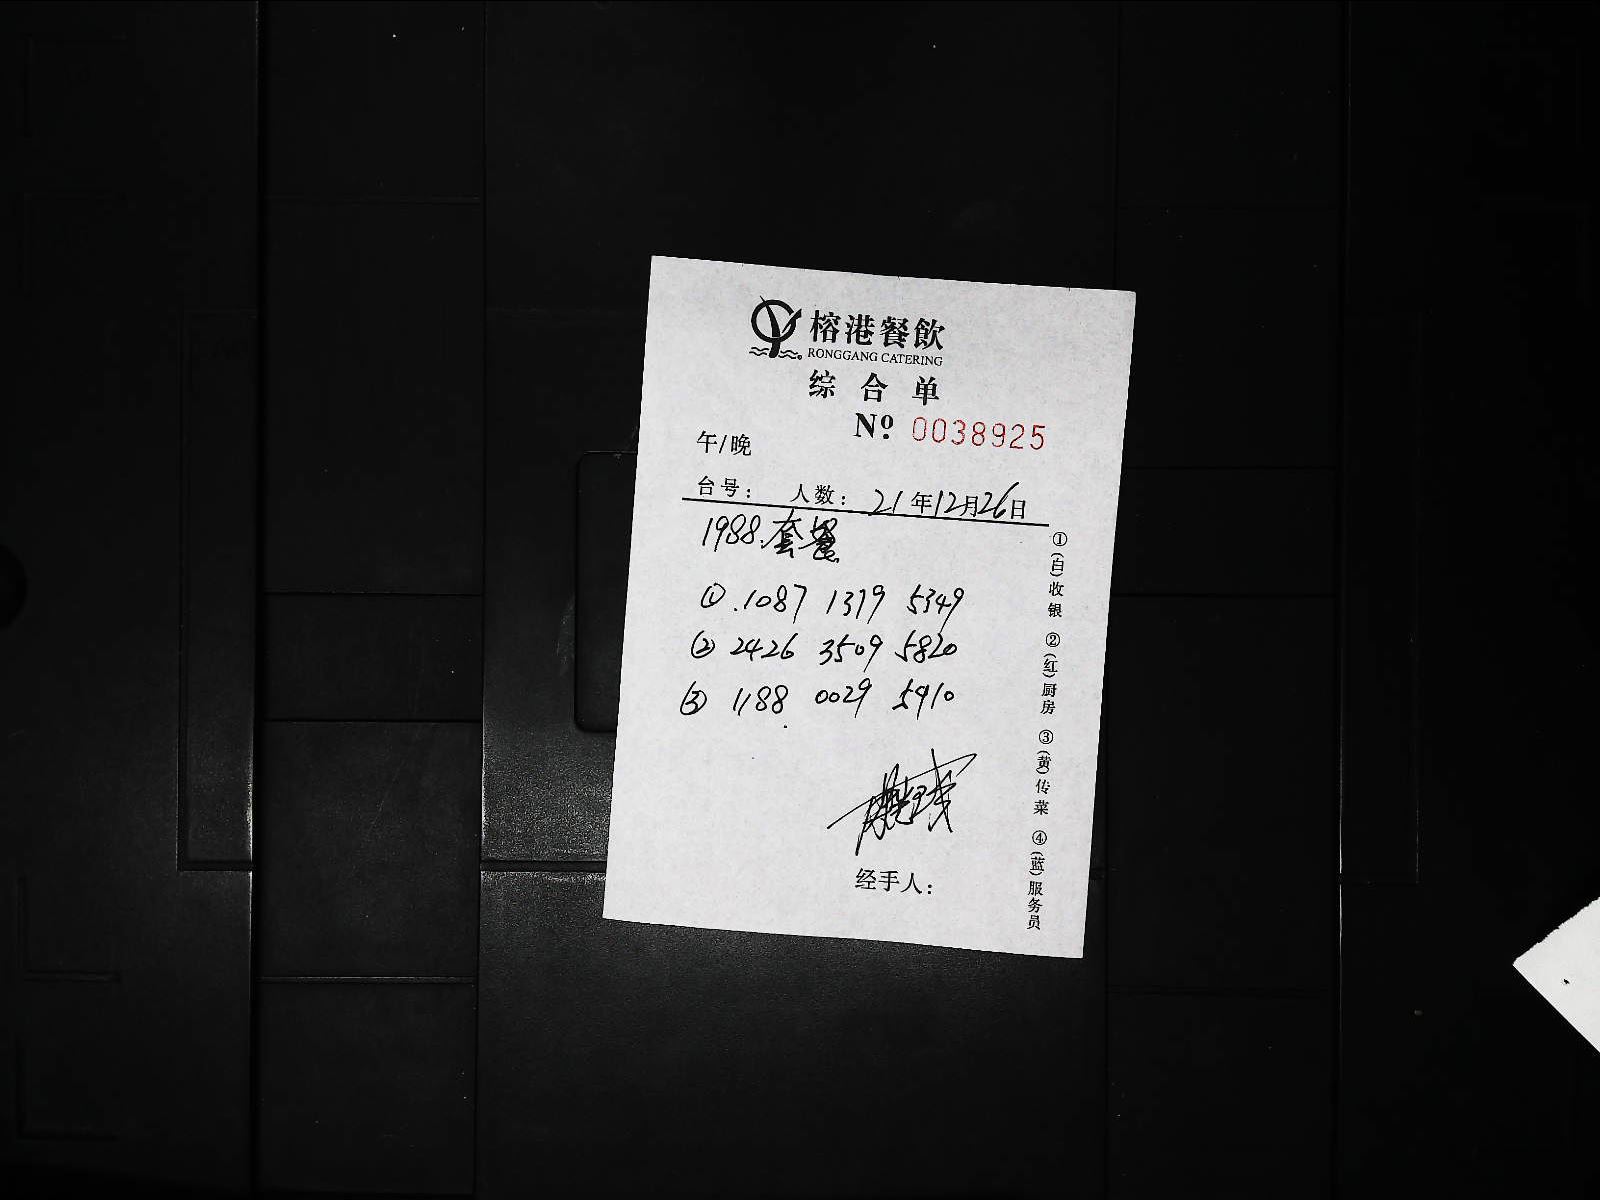 榕港餐飲
RONGGANG CATERING
综合单
Nº 0038925
午/晚
台号: 人数: 21年12月26日
1988.套餐
① .1087 1379 5349
② 2426 3509 5820
③ 1188 0029 5910
经手人:
①(白)收银 ②(红)厨房 ③(黄)传菜 ④(蓝)服务员